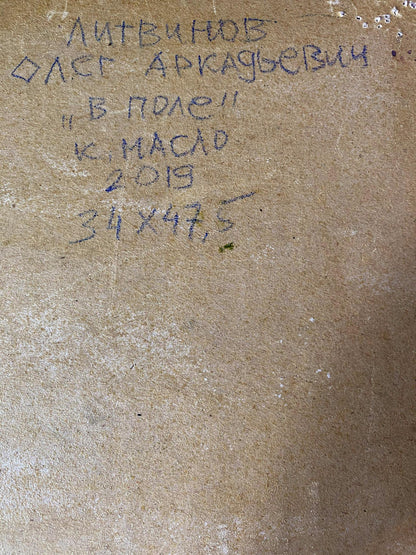 ЛИТВИНОВ
ОЛЕГ АРКАДЬЕВИЧ
„В ПОЛЕ"
К. МАСЛО
2019
34 X 47,5